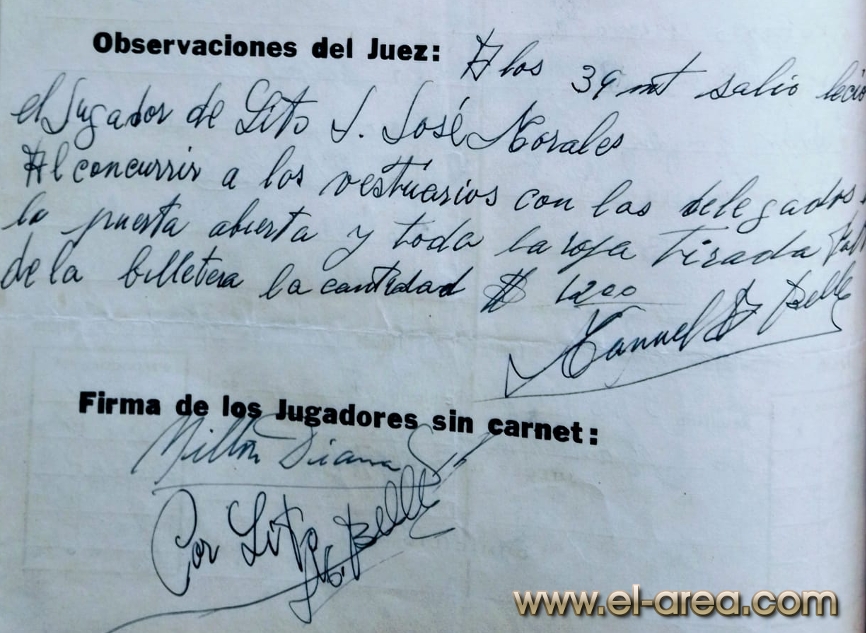 Observaciones del Juez: A los 39 mt salio
el Jugador de Lito J. José Morales
Al concurrir a los vestuarios con los delegados
la puerta abierta y toda la ropa tirada
de la billetera la cantidad $ 1200
Manuel Bello
Firma de los Jugadores sin carnet:
Milton Viana
Por Lito
M. Bello
www.el-area.com